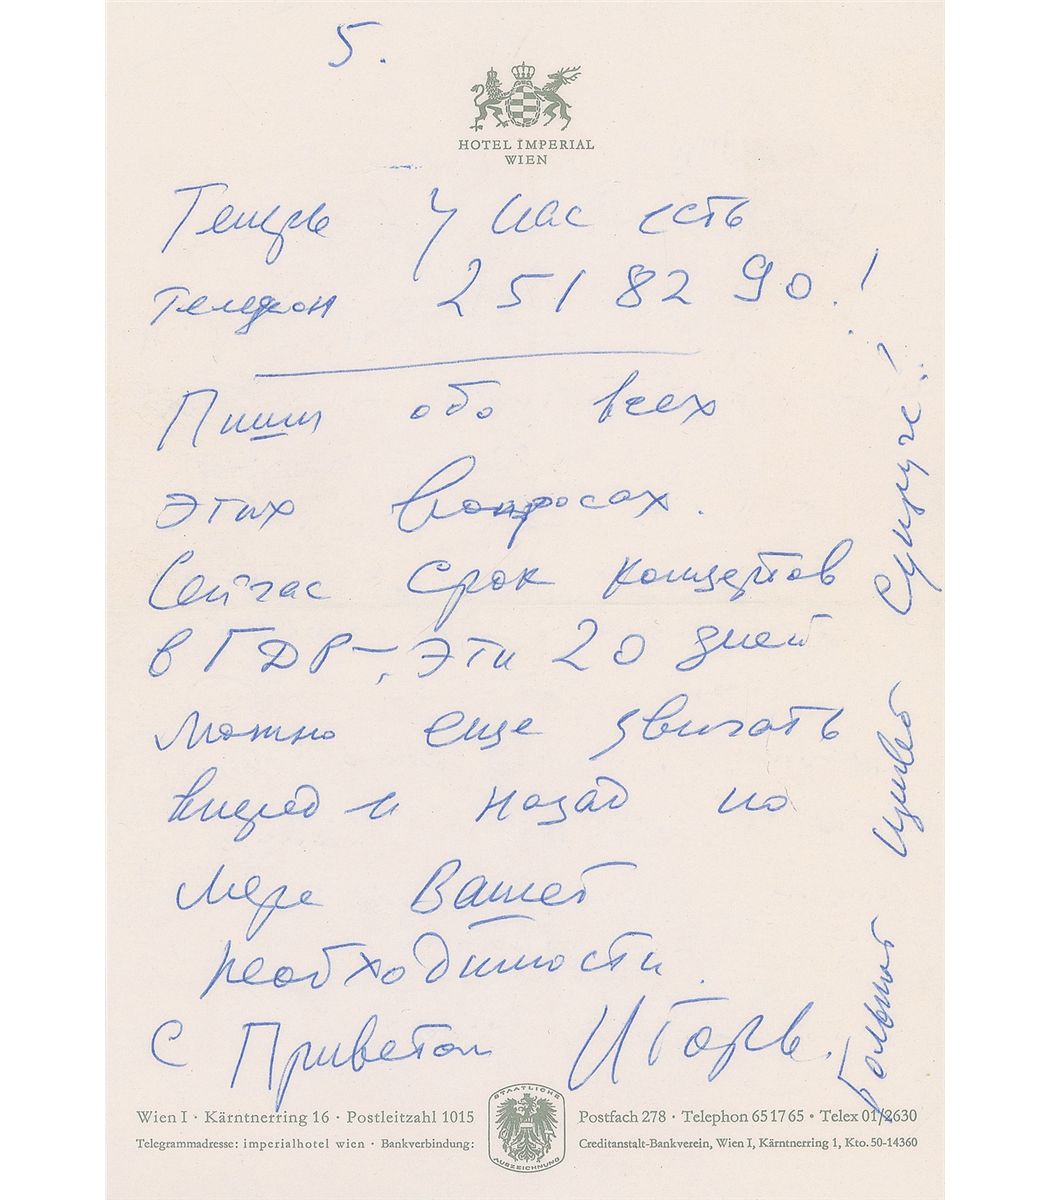 5.
HOTEL IMPERIAL
WIEN
Теперь у нас есть
телефон 251 82 90.!
Пиши обо всех
этих вопросах.
Сейчас срок концертов
в ГДР –, эти 20 дней
можно еще двигать
вперед и назад по
мере Вашей
необходимости.
С Приветом Игорь.
Большой привет супруге!
Wien I · Kärntnerring 16 · Postleitzahl 1015
Telegrammadresse: imperialhotel wien · Bankverbindung:
STAATLICHE
AUSZEICHNUNG
Postfach 278 · Telephon 65 17 65 · Telex 01/2630
Creditanstalt-Bankverein, Wien I, Kärntnerring 1, Kto. 50-14360